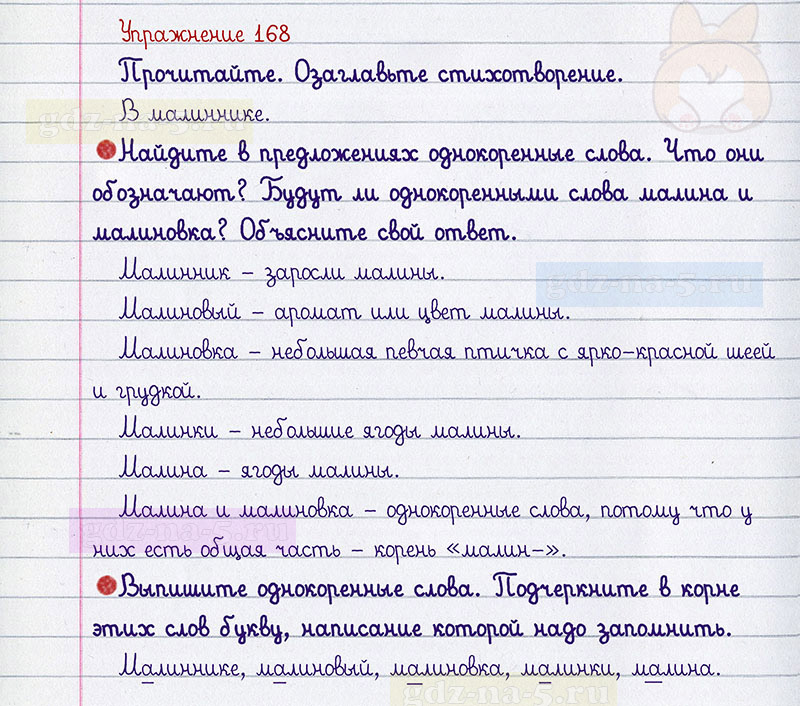 Упражнение 168
Прочитайте. Озаглавьте стихотворение.
В малиннике.
gdz-na-5.ru
Найдите в предложениях однокоренные слова. Что они
обозначают? Будут ли однокоренными слова малина и
малиновка? Объясните свой ответ.
Малинник – заросли малины.
gdz-na-5.ru
Малиновый – аромат или цвет малины.
Малиновка – небольшая певчая птичка с ярко-красной шеей
и грудкой.
Малинки – небольшие ягоды малины.
Малина – ягоды малины.
Малина и малиновка – однокоренные слова, потому что у
gdz-na-5.ru
них есть общая часть – корень «малин-».
Выпишите однокоренные слова. Подчеркните в корне
этих слов букву, написание которой надо запомнить.
Малиннике, малиновый, малиновка, малинки, малина.
gdz-na-5.ru